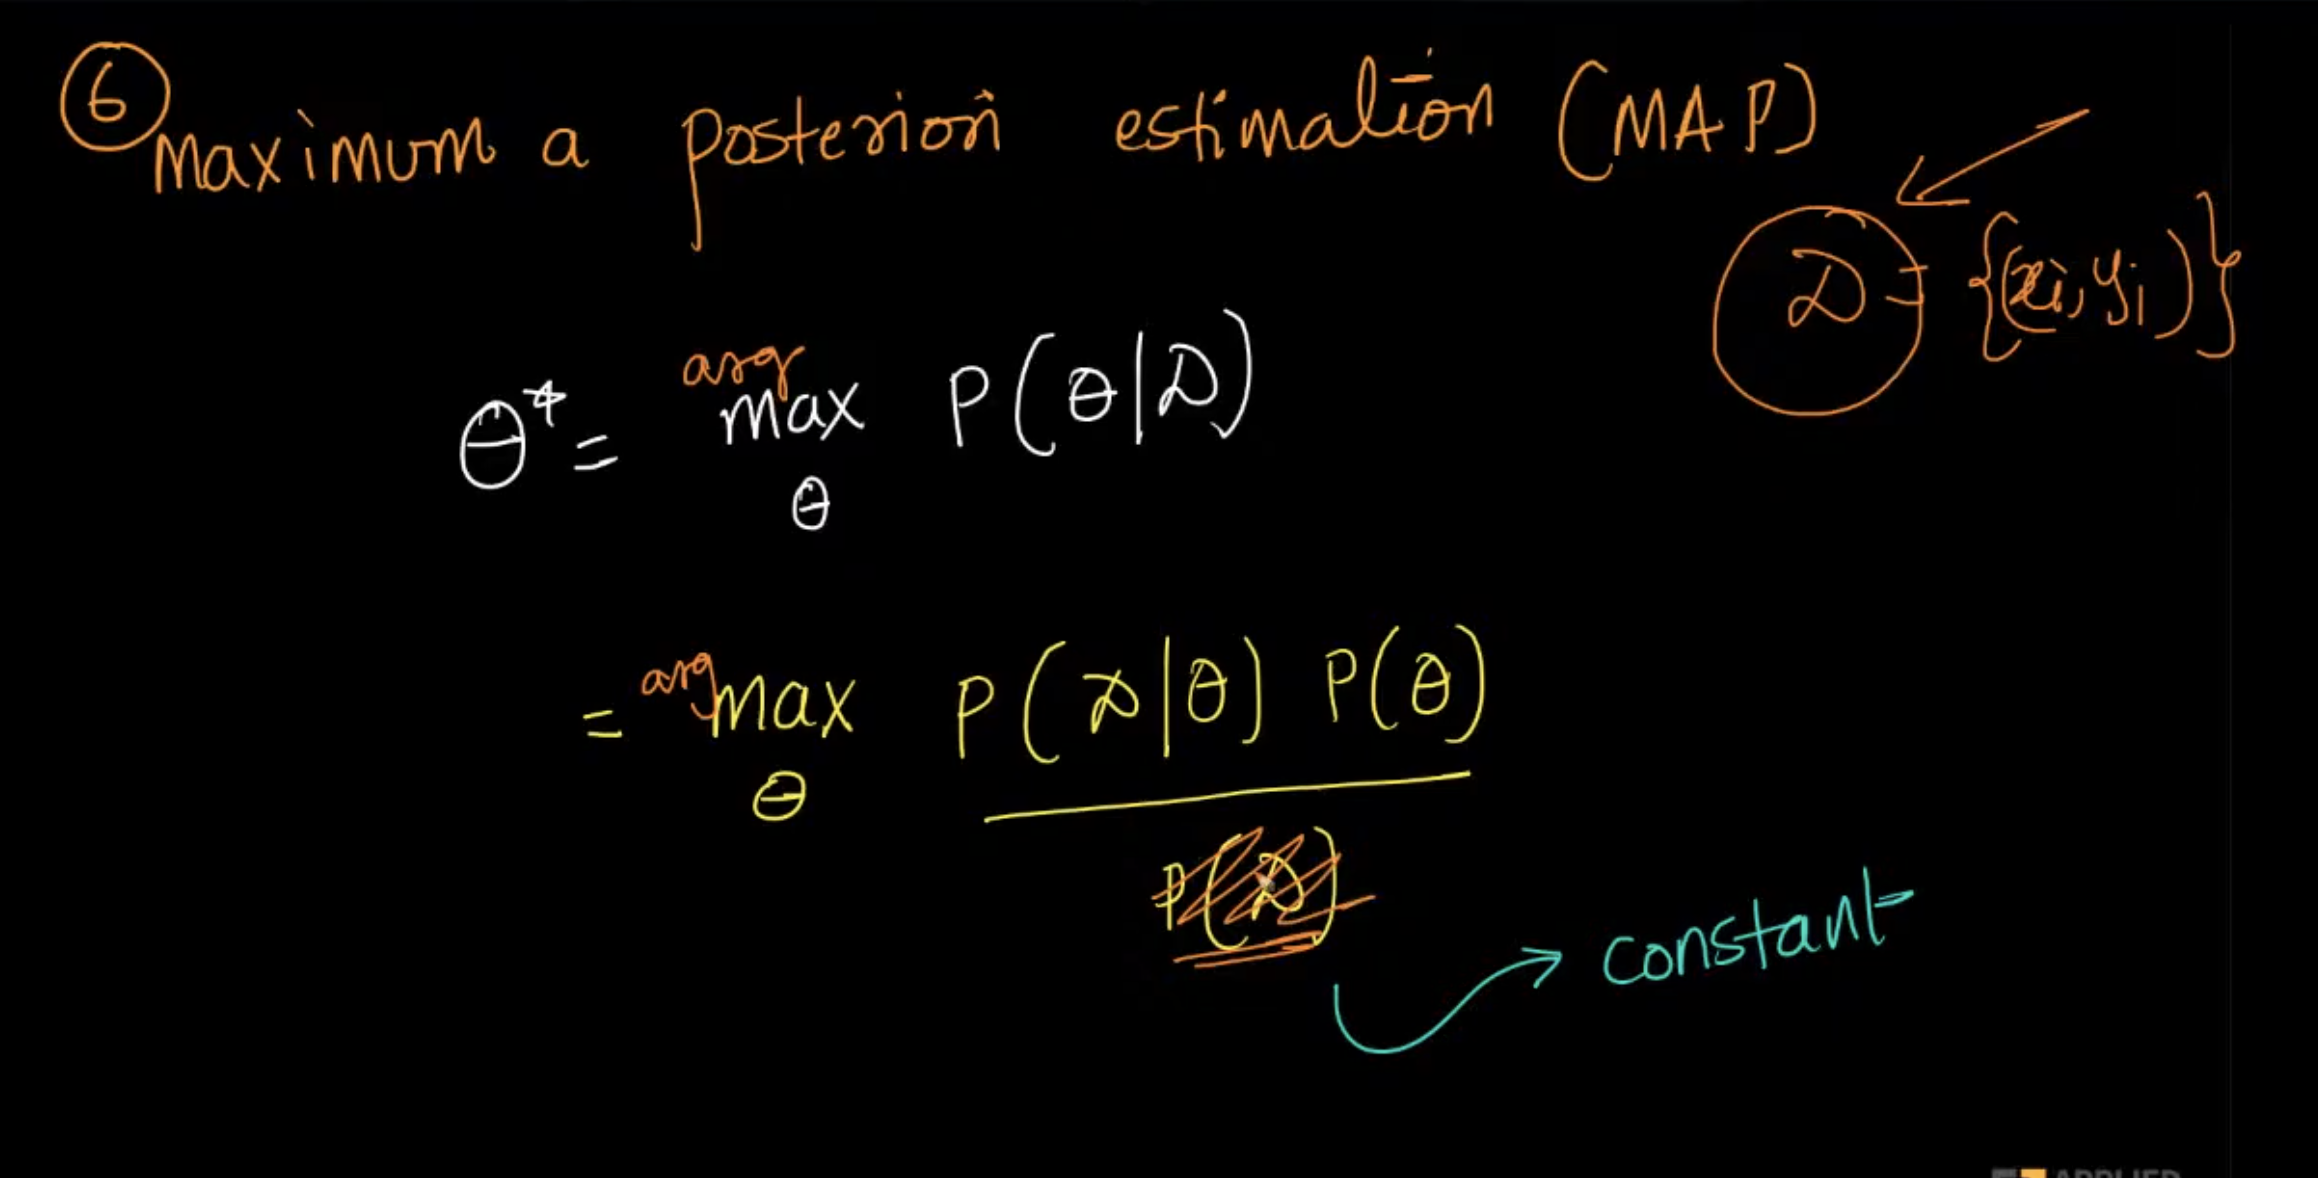 6 Maximum a posteriori estimation (MAP)
D = {(xi, yi)}
θ* = arg max P(θ|D)
θ
= arg max P(D|θ) P(θ)
θ
P(D)
constant
APPLIED